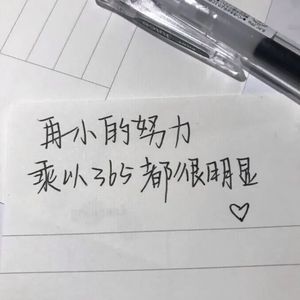 再小的努力
乘以365都很明显
♡